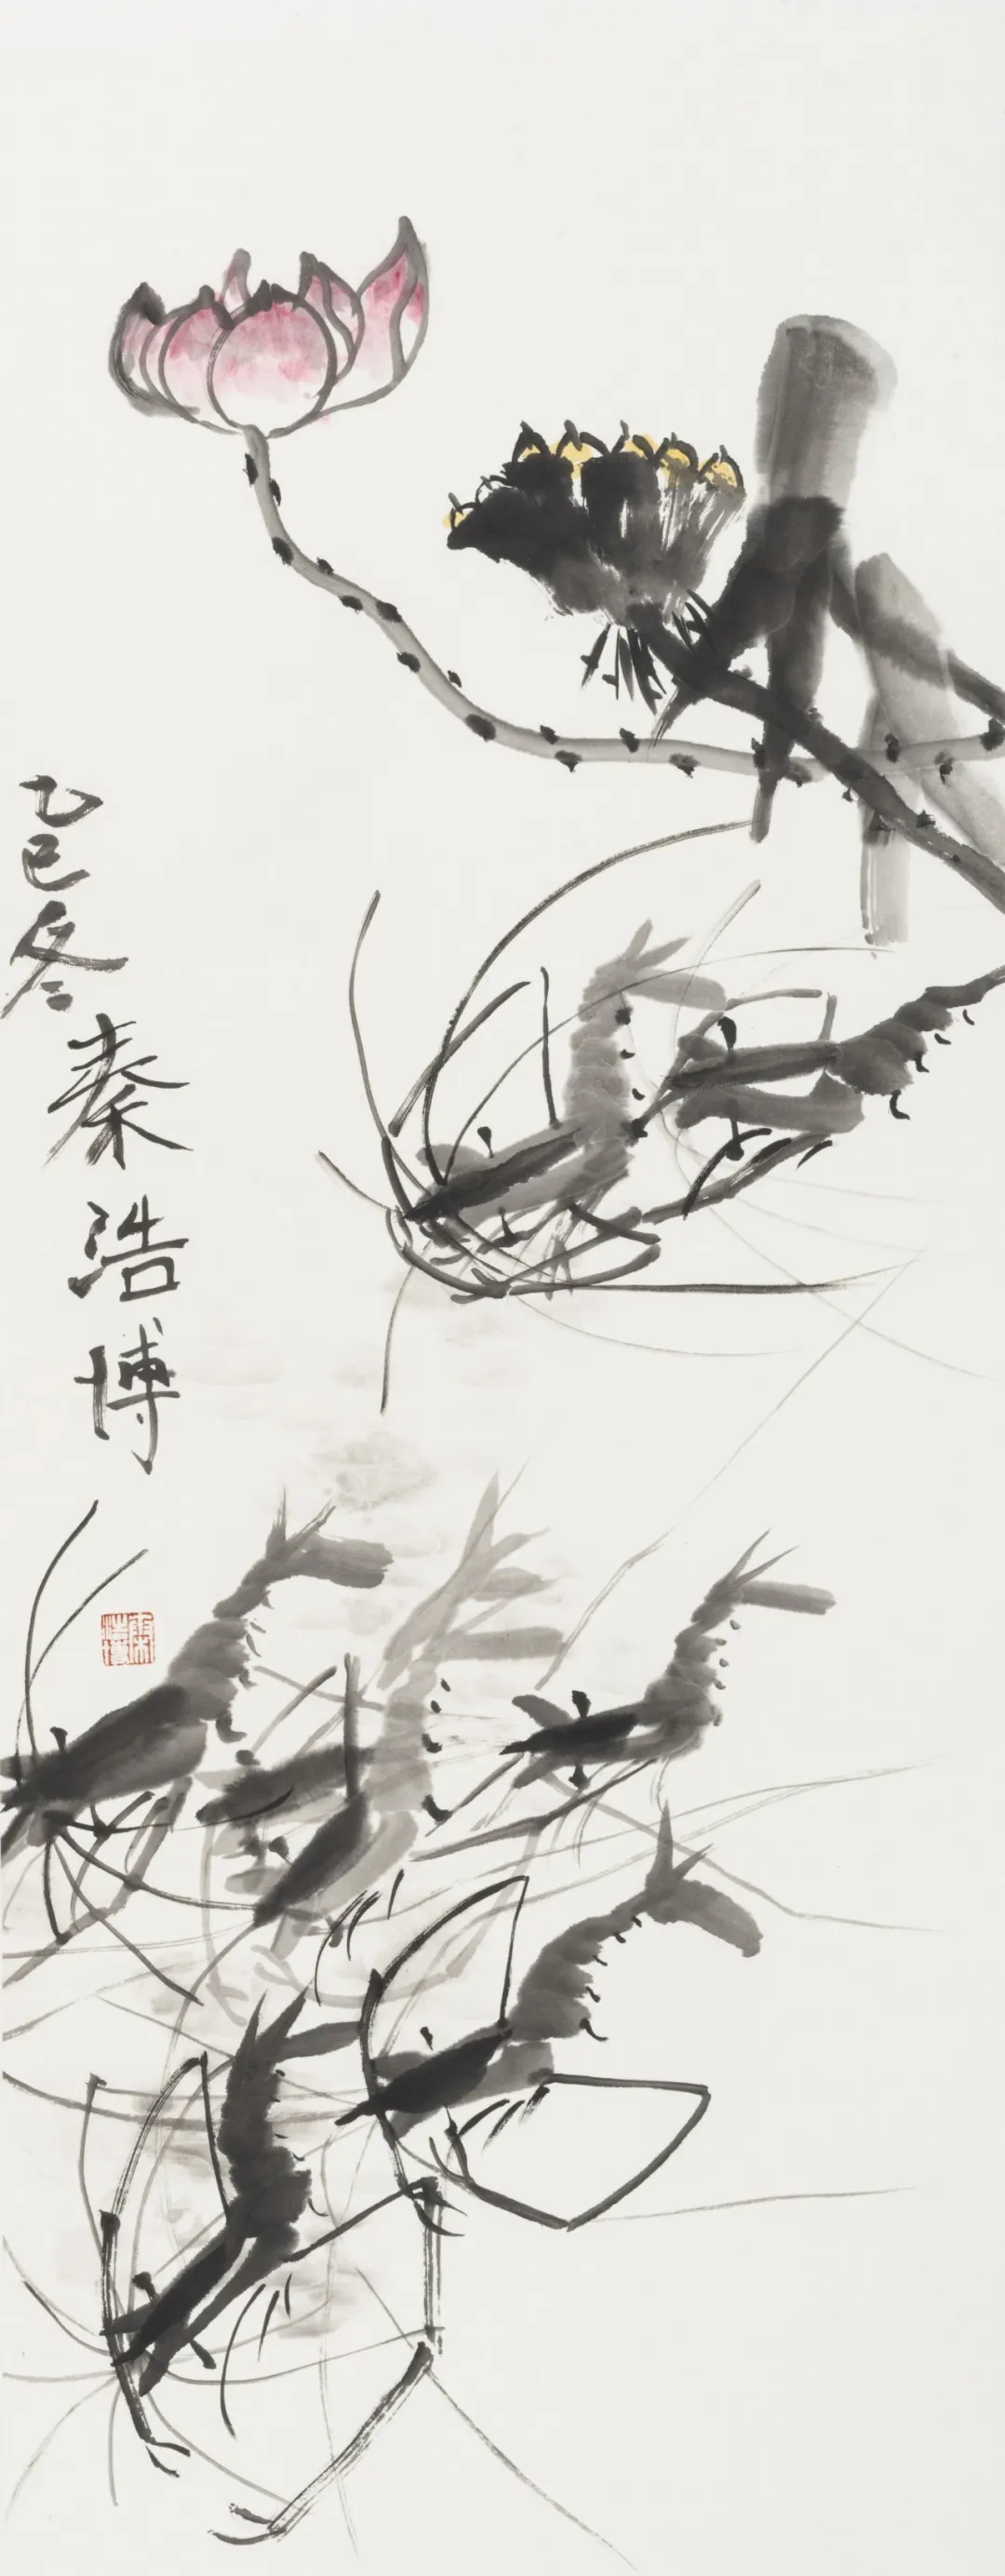 乙巳冬
秦浩博